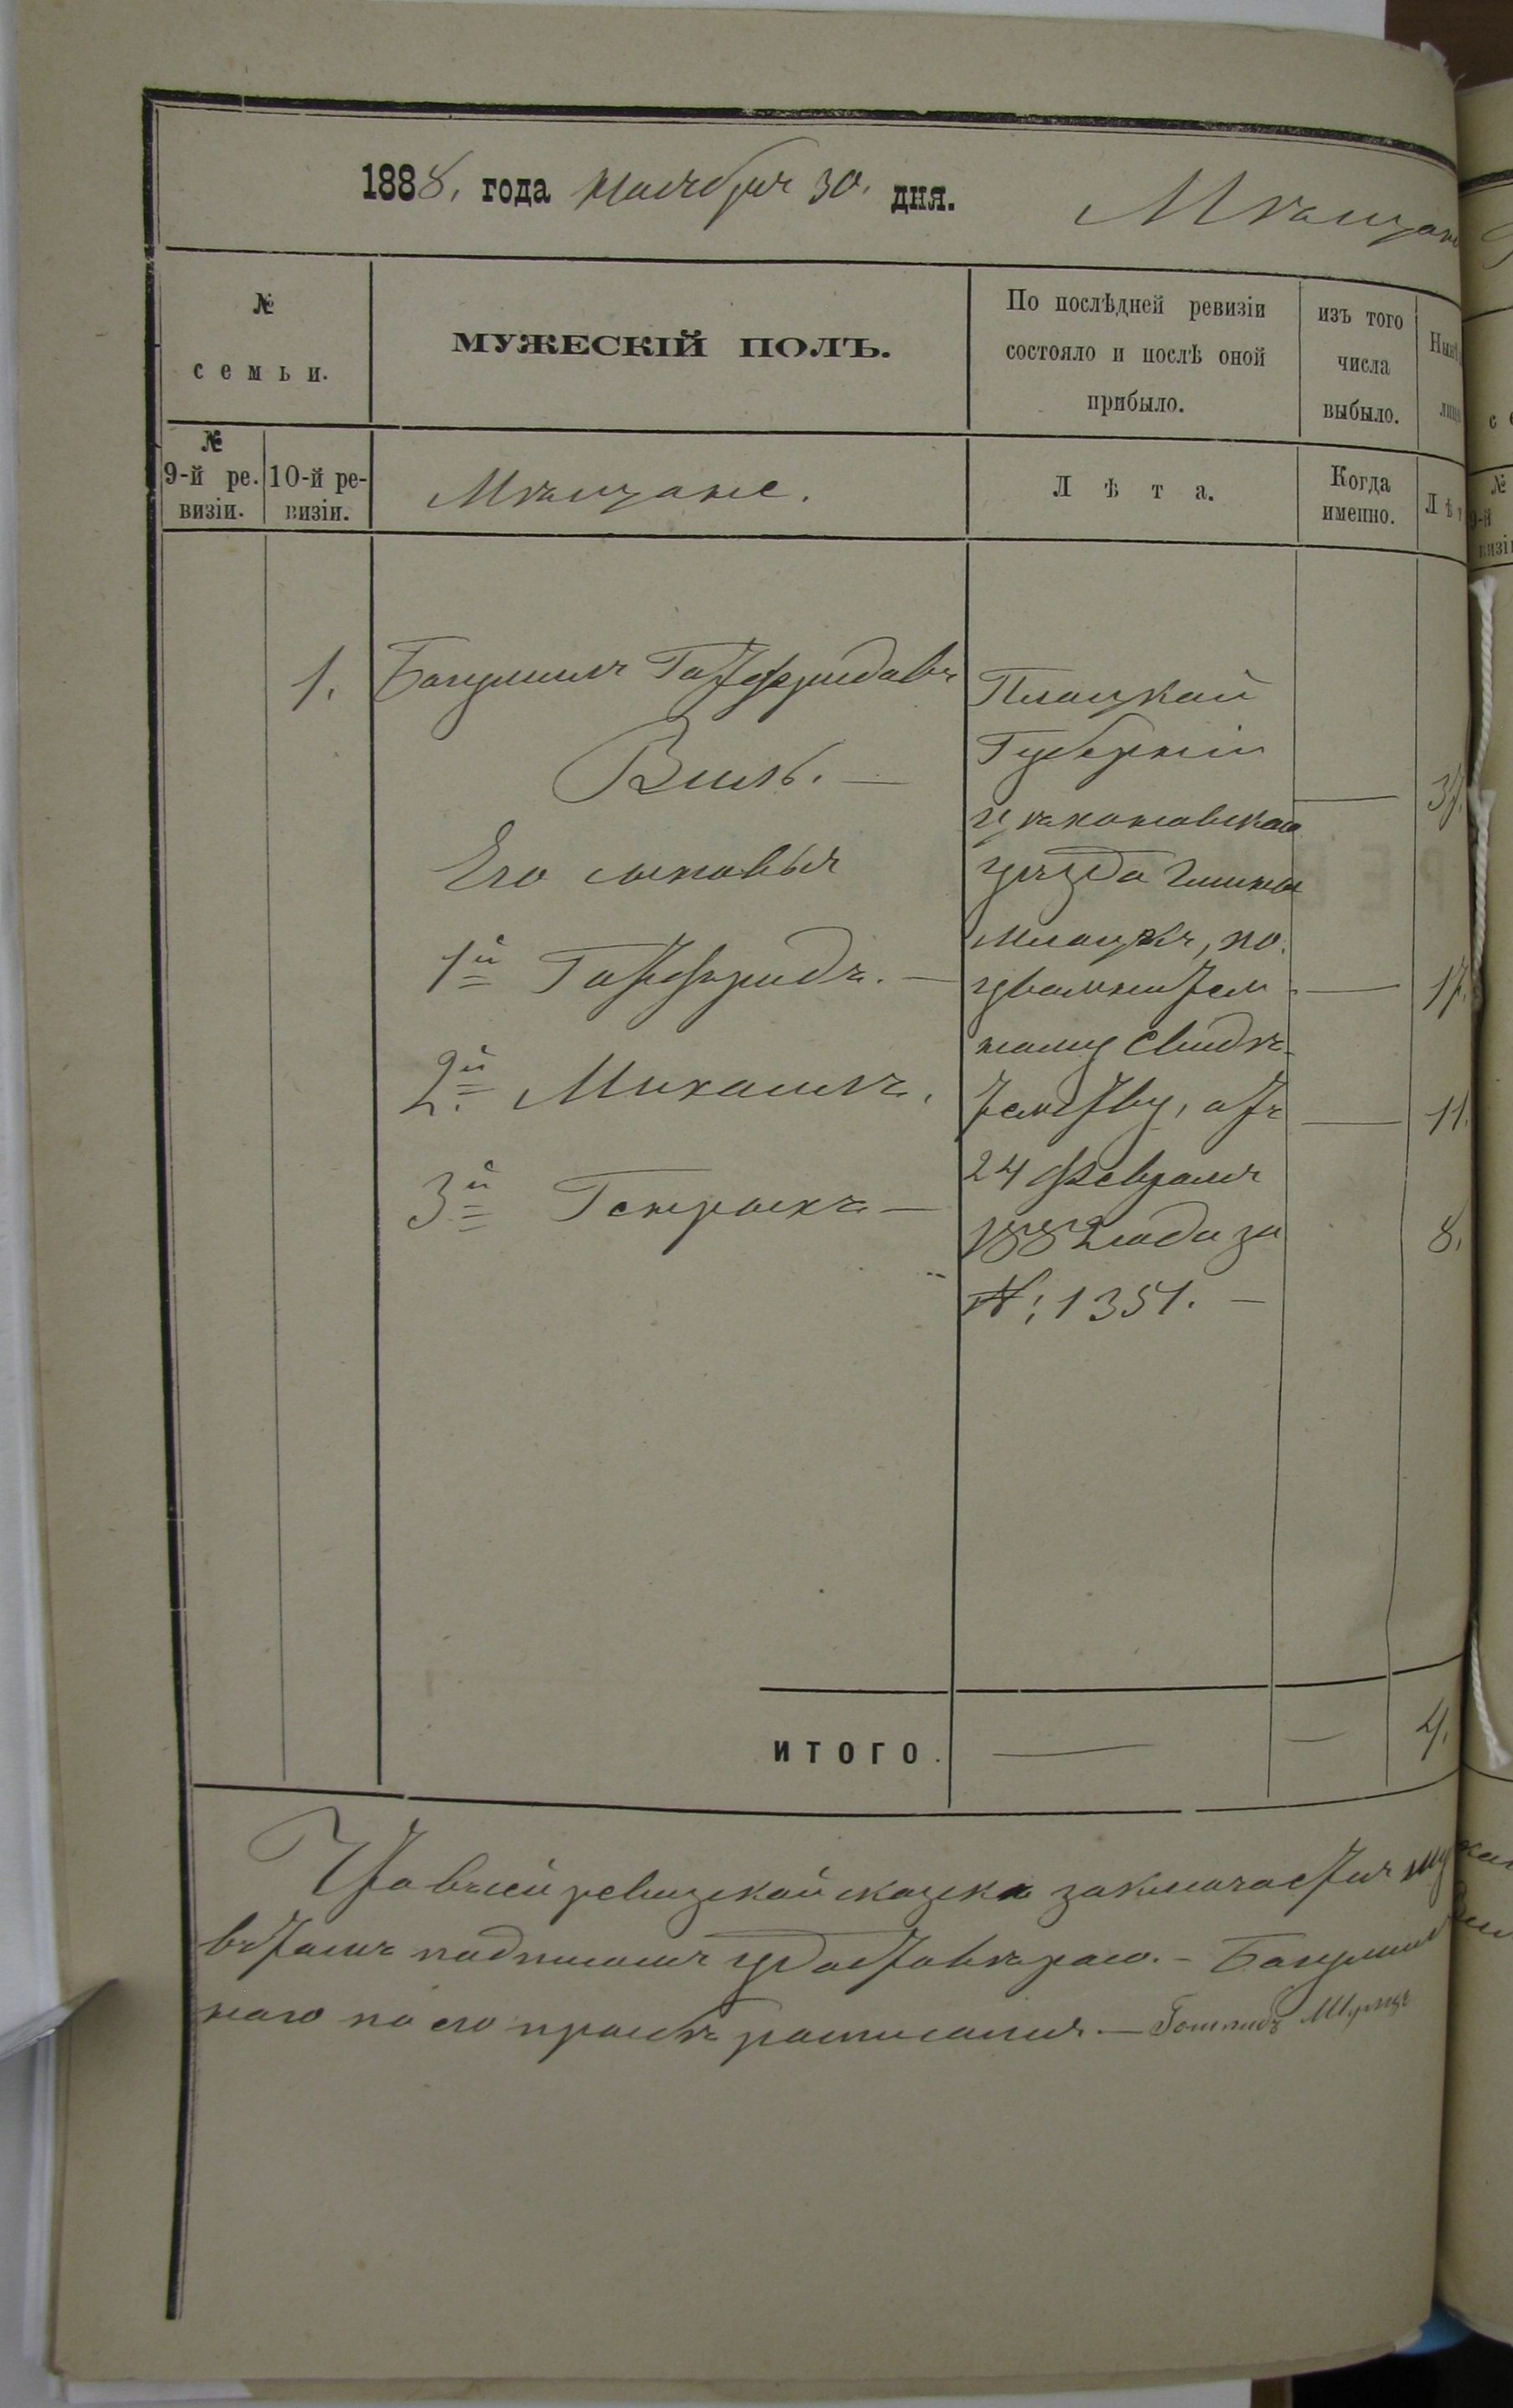 1888, года Ноября 30, дня. Мѣщане
№ семьи.
МУЖЕСКІЙ ПОЛЪ.
По послѣдней ревизіи
состояло и послѣ оной
прибыло.
изъ того
числа
выбыло.
№
9-й ре-
визіи.
10-й ре-
визіи.
Мѣщане.
Л ѣ т а.
Когда
именно.
1. Богумилъ Готфридовъ
Виль. —
Его сыновья
1й Готфридъ. —
2й Михаилъ.
3й Генрыхъ —
Плоцкой
Губерніи
Цѣхановскаго
уѣзда Гмины
Млоцкъ, по
увольнитель
ному свидѣ-
тельству, отъ
24 Февраля
1882 года за
№: 1351. —
37.
17.
11.
8.
ИТОГО. — — 4.
Что въ сей ревизской сказкѣ заключается
въ томъ подписомъ удостовѣряю. — Богумил
наго по его прозьбѣ росписался. —